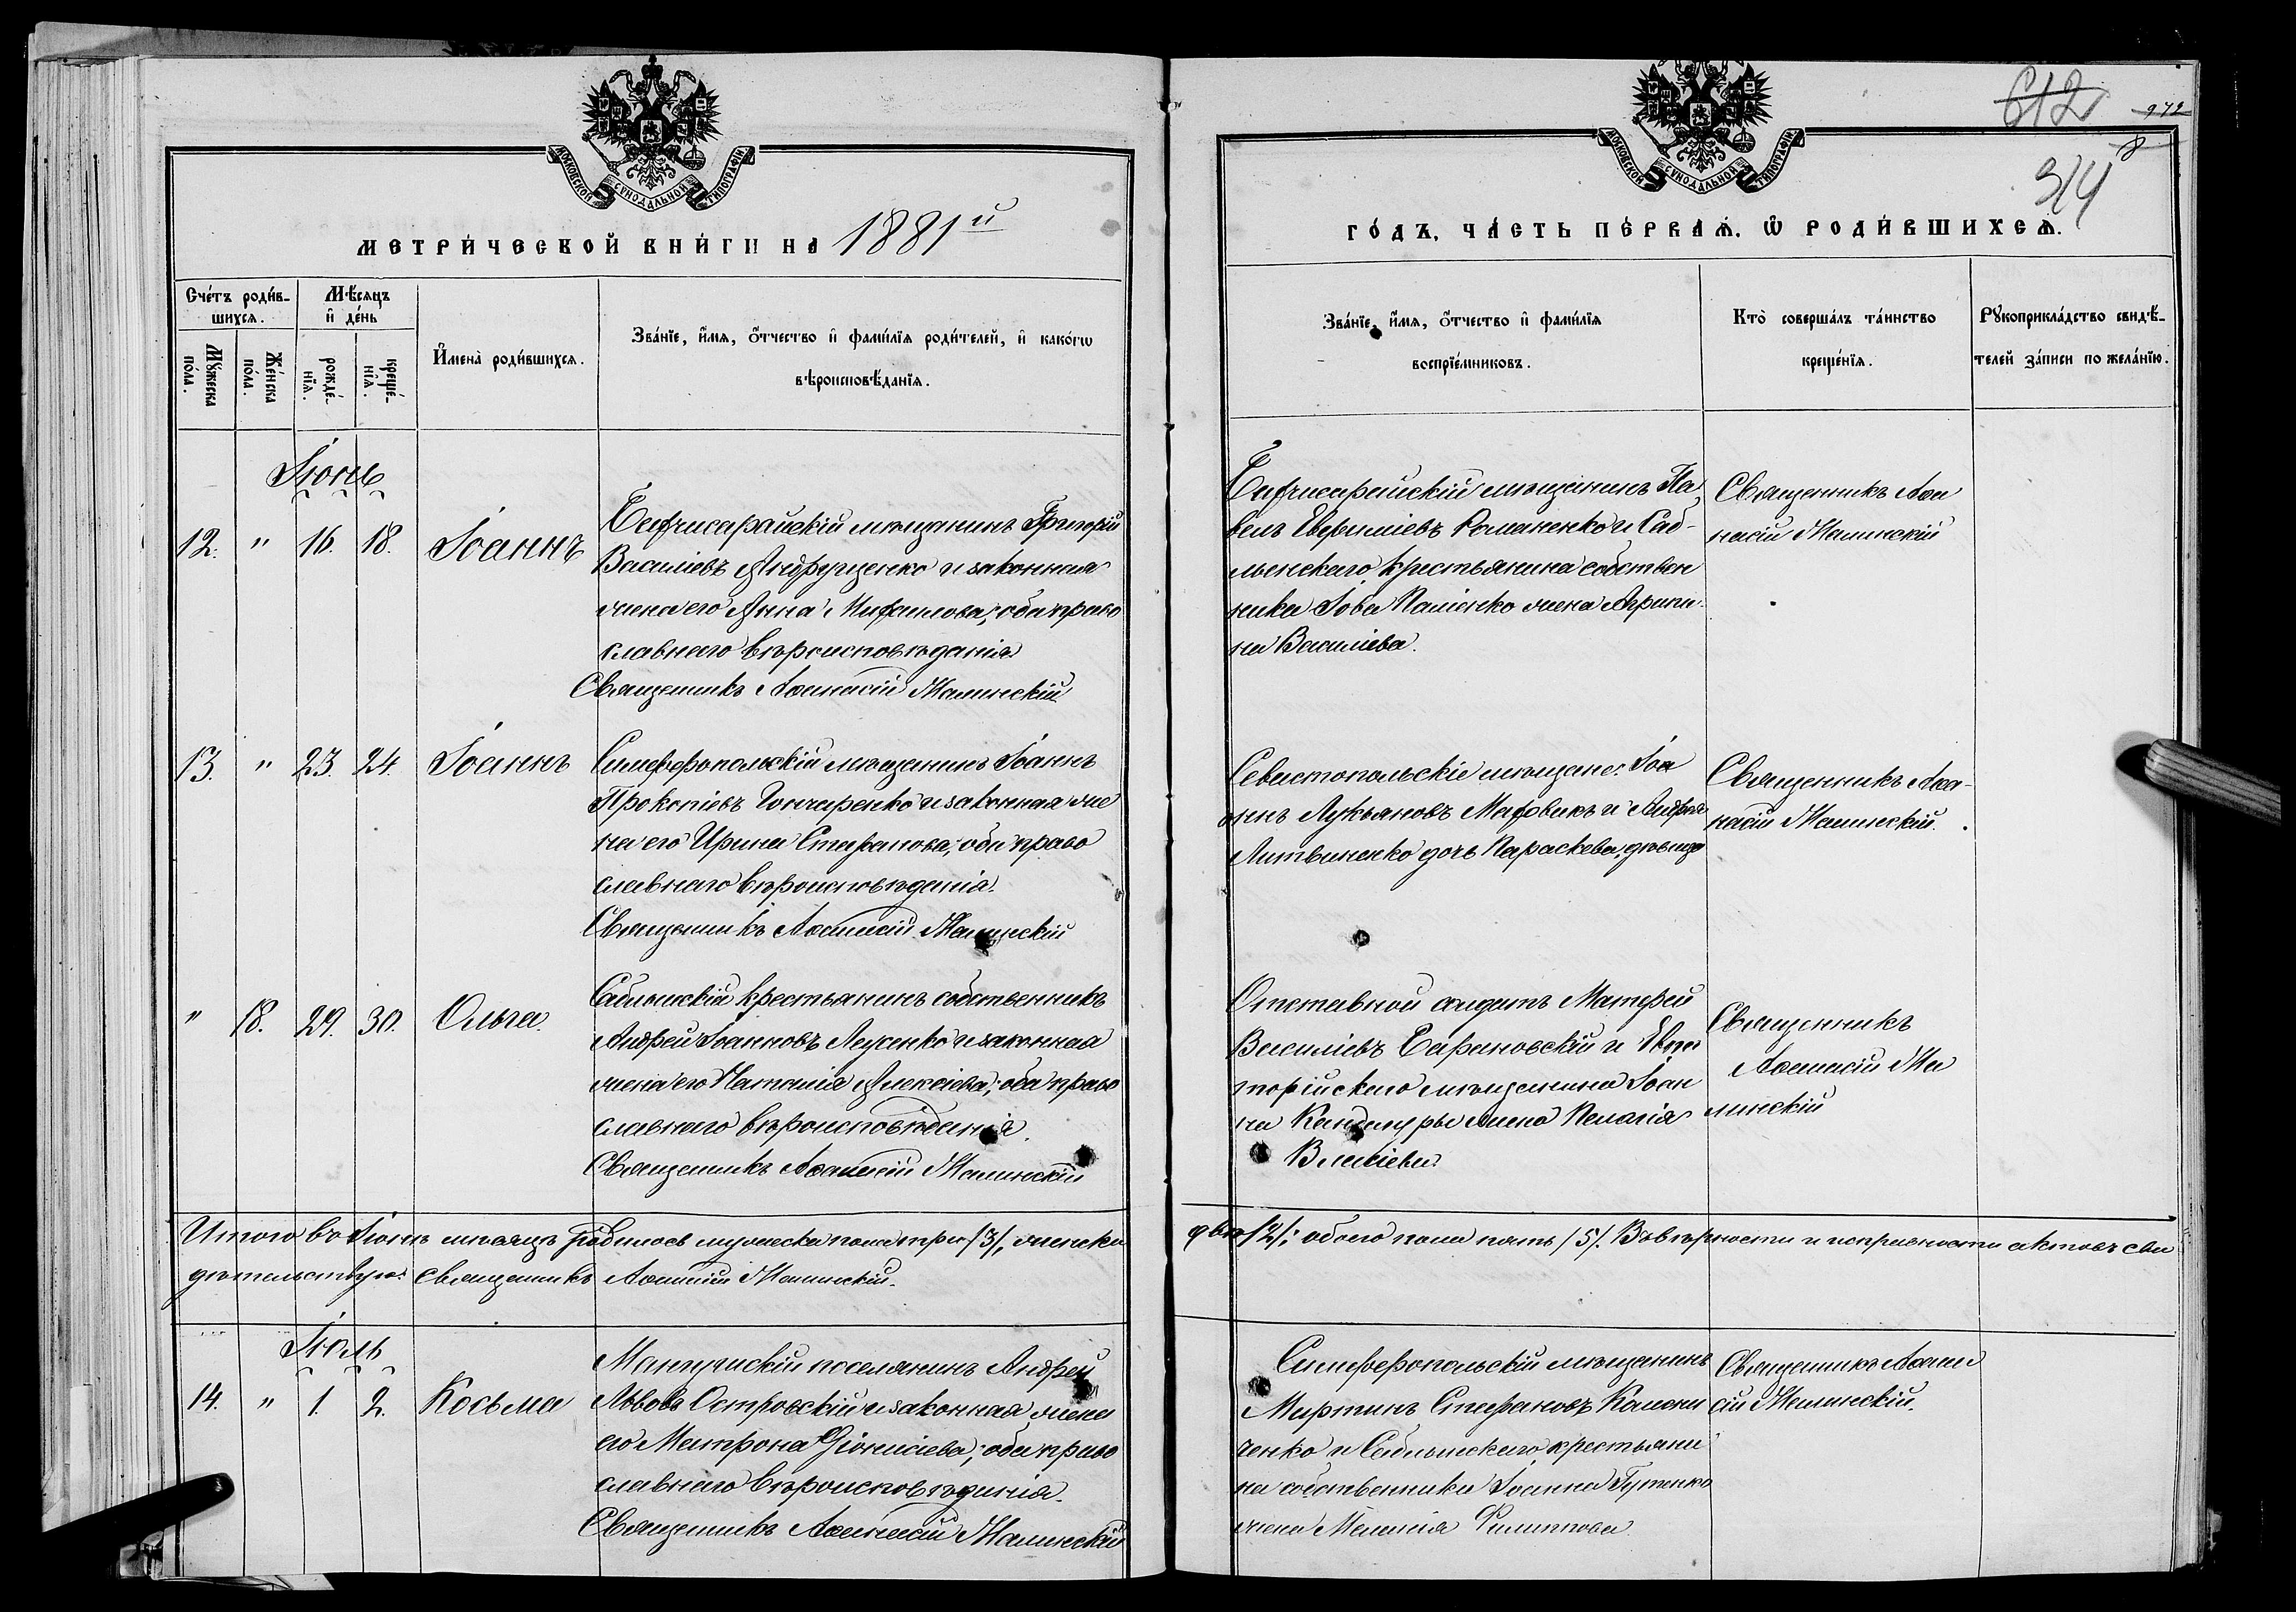 МОСКОВСКОЙ СѴНОДАЛЬНОЙ ТИПОГРАФІИ
МОСКОВСКОЙ СѴНОДАЛЬНОЙ ТИПОГРАФІИ
612
972
8
314
МЕТРИ́ЧЕСКОЙ КНИ́ГИ НА 1881й
ГО́ДЪ, ЧА́СТЬ ПЕ́РВАѦ, Ѡ РОДИ́ВШИХСѦ.
Сче́тъ роди́в-
шихсѧ.
Мѣ́сѧцъ
и҆ де́нь
Мꙋ́жеска по́ла.
Же́нска по́ла.
рожде́-нїѧ.
креще́-нїѧ.
И҆мена̀ роди́вшихсѧ.
Зва́нїе, и҆́мѧ, ѻ҆́тчество и҆ фами́лїѧ роди́телей, и҆ како́гѡ
вѣроисповѣ́данїѧ.
Зва́нїе, и҆́мѧ, ѻ҆́тчество и҆ фами́лїѧ
воспрїе́мниковъ.
Кто̀ соверша́лъ та́инство
креще́нїѧ.
Рꙋкоприкла́дство свидѣ́-
телей за́писи по жела́нїю.
Іюнь
12. " 16. 18. Іоаннъ
Бахчисарайскій мѣщанинъ Григорій
Василіевъ Андрущенко и законная
жена его Анна Михаилова; оба право
славнаго вѣроисповѣданія.
Священникъ Аѳанасій Малинскій
Бахчисарайскій мѣщанинъ Па
велъ Евфиміевъ Романенко и Саб-
лынскаго крестьянина собствен
ника Іова Паліенко жена Агрипи
на Василіева.
Священникъ Аѳа
насій Малинскій
13. " 23. 24. Іоаннъ
Симферопольскій мѣщанинъ Іоаннъ
Прокопіевъ Гончаренко и законная же
на его Ирина Стефанова; оба право
славнаго вѣроисповѣданія.
Священникъ Аѳанасій Малинскій
Севастопольскіе мѣщане: Іоа
ннъ Лукьяновъ Маховикъ и Андрея
Литвиненко дочь Параскева, дѣвица
Священникъ Аѳа-
насій Малинскій.
" 18. 29. 30. Ольга.
Саблынскій крестьянинъ собственникъ
Андрей Іоанновъ Лесенко и законная
жена его Наталія Алексіева; оба право
славнаго вѣроисповѣданія.
Священникъ Аѳанасій Малинскій
Отставной солдатъ Матфей
Василіевъ Барановскій и Евпа
торійскаго мѣщанина Іоан
на Кандыуры жена Пелагія
Василіева.
Священникъ
Аѳанасій Ма
линскій
Итого во Іюнѣ мѣсяцѣ родилось мужеска пола три /3/, женска
двѣ /2/; обоего пола пять /5/. Въ вѣрности и исправности актовъ сви
дѣтельствую: Священникъ Аѳанасій Малинскій.
Іюль
14. " 1. 2. Косьма
Мангушскій поселянинъ Андрей
Львовъ Островскій и законная жена
его Матрона Діонисіева; оба право
славнаго вѣроисповѣданія.
Священникъ Аѳанасій Малинскій
Симферопольскій мѣщанинъ
Мартинъ Стефановъ Камени
ченко и Саблынскаго крестьяни
на собственника Іоанна Гутенко
жена Меланія Филиппова.
Священникъ Аѳана
сій Малинскій.